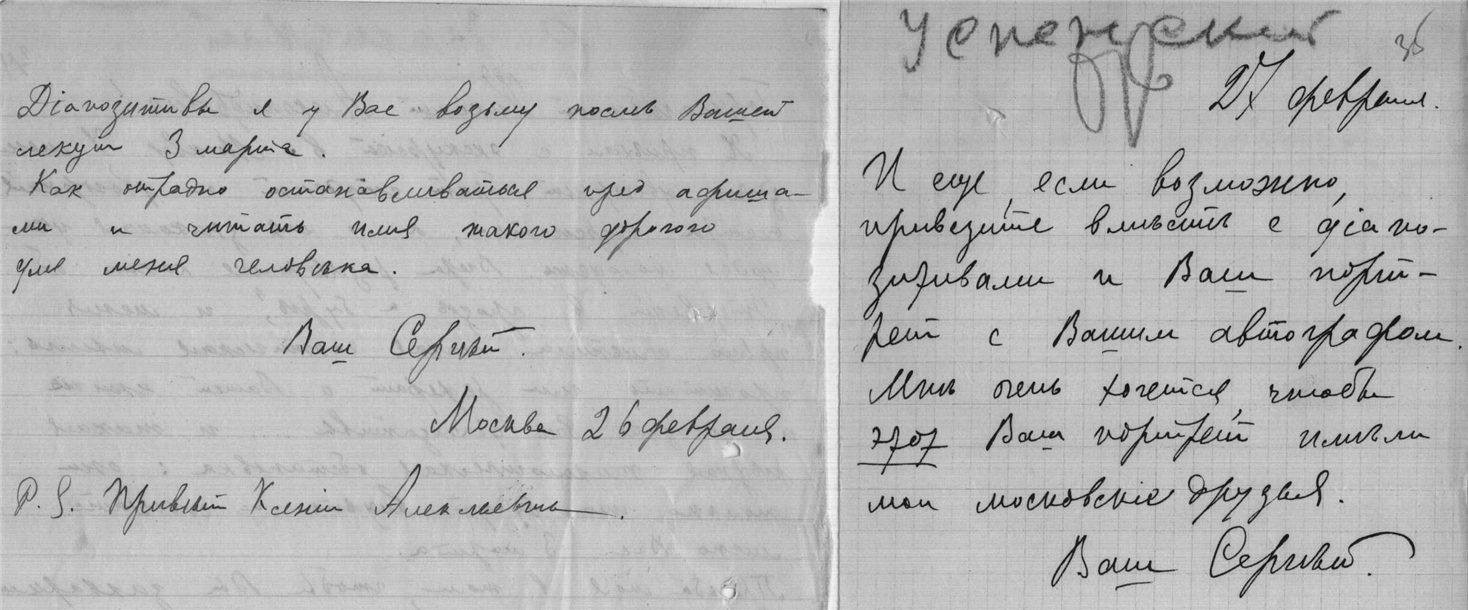 Діапозитивы я у Вас возьму послѣ Вашей
лекціи 3 марта.
Как отрадно останавливаться пред афиша-
ми и читать имя такого дорогого
для меня человѣка.
Ваш Сергѣй.
Москва 26 февраля.
P. S. Привѣт Ксеніи Алексѣевнѣ.
Успенский
36
27 февраля.
И еще, если возможно,
привезите вмѣстѣ с діапо-
зитивами и Ваш порт-
рет с Вашим автографом.
Мнѣ очень хочется, чтобы
этот Ваш портрет имѣли
мои московскіе друзья.
Ваш Сергѣй.